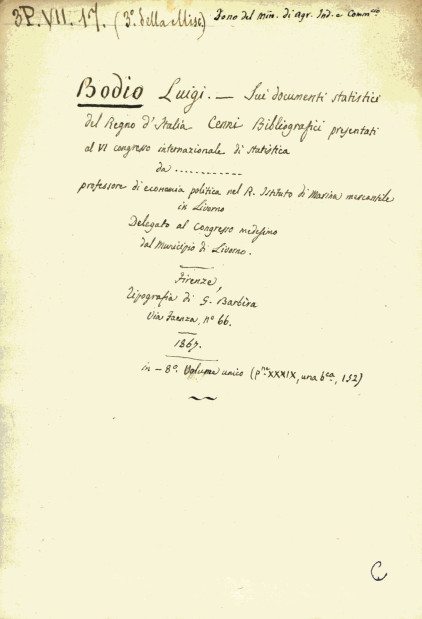 3P. VII. 17. (3º. della Misc.) Dono del Min. di Agr. Ind. e Commcio
Bodio Luigi. — Sui documenti statistici
del Regno d'Italia Cenni Bibliografici presentati
al VI congresso internazionale di Statistica
da ............
professore di economia politica nel R. Istituto di Marina mercantile
in Livorno
Delegato al Congresso medesimo
dal Municipio di Livorno.
Firenze,
Tipografia di G. Barbèra
Via Faenza, nº 66.
1867.
in – 8º. Volume unico (pne XXXIX, una bca, 152)
C